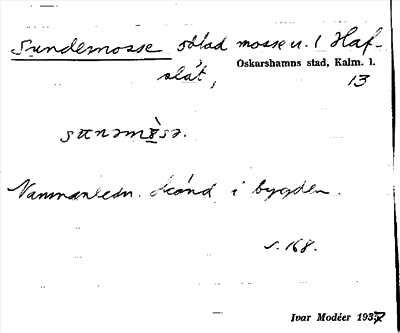 Sundemosse odlad mosse u. / Haf-
slät, Oskarshamns stad, Kalm. l.
13
sɯnəmòsə.
Namnanledn. okänd i bygden.
s. 168.
Ivar Modéer 1937